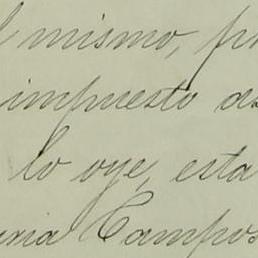 mismo, p
impuesto de
lo oye, esta
Campos